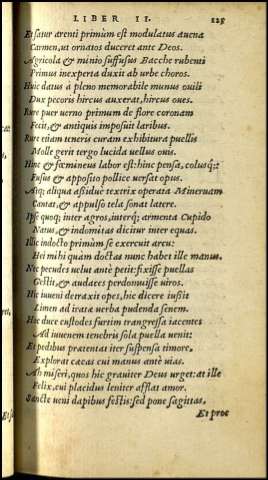 LIBER II. 125
Et satur arenti primùm est modulatus auena
Carmen, ut ornatos duceret ante Deos.
Agricola & minio suffusus Bacche rubenti
Primus inexperta duxit ab urbe choros.
Huic datus à pleno memorabile munus ouili
Dux pecoris hircus auxerat, hircus oues.
Rure puer uerno primum de flore coronam
Fecit, & antiquis imposuit laribus.
Rure etiam teneris curam exhibitura puellis
Molle gerit tergo lucida uellus ouis.
Hinc & fœmineus labor est: hinc pensa, colusq;:
Fusus & apposito pollice uersat opus.
Atq; aliqua assiduè textrix operata Mineruam
Cantat, & appulso tela sonat latere.
Ipse quoq; inter agros, interq; armenta Cupido
Natus, & indomitas dicitur inter equas.
Illic indocto primùm se exercuit arcu:
Hei mihi quàm doctas nunc habet ille manus.
Nec pecudes uelut antè petit: fixisse puellas
Gestit, & audaces perdomuisse uiros.
Hic iuueni detraxit opes, hic dicere iußit
Limen ad iratæ uerba pudenda senem.
Hic duce custodes furtim transgressa iacentes
Ad iuuenem tenebris sola puella uenit:
Et pedibus prætentat iter suspensa timore,
Explorat cæcas cui manus antè uias.
Ah miseri, quos hic grauiter Deus urget: at ille
Felix, cui placidus leniter afflat amor.
Sancte ueni dapibus festis: sed pone sagittas,
Et proc